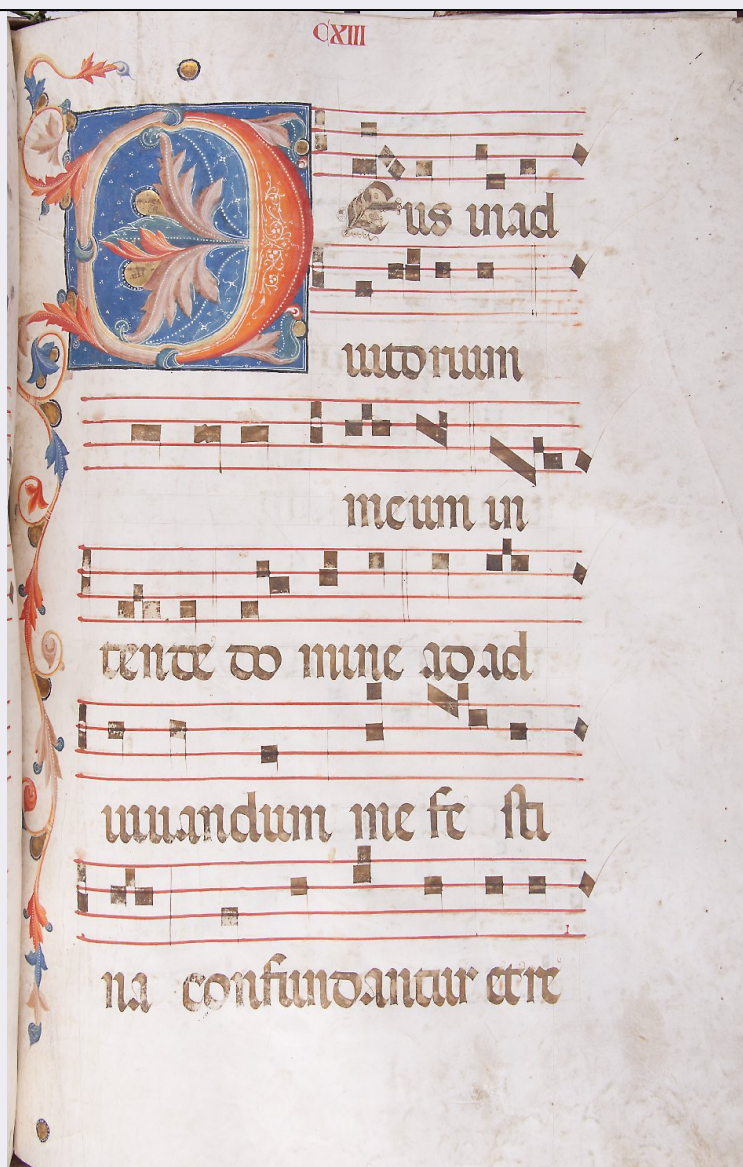 CXIII
DEus in ad
iutorium
meum in
tende do mine ad ad
iuuandum me fe sti
na confundantur et re